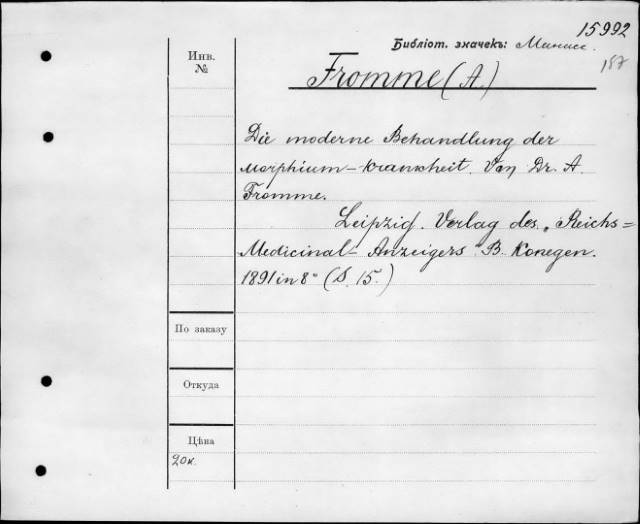 15992
Библіот. значекъ: Манасс.
187
Инв.
№
Fromme (A.)
Die moderne Behandlung der
Morphium-krankheit. Von Dr. A.
Fromme.
Leipzig. Verlag des „Reichs=
Medicinal-Anzeigers" B. Konegen.
1891 in 8° (S. 15.)
По заказу
Откуда
Цѣна
20к.